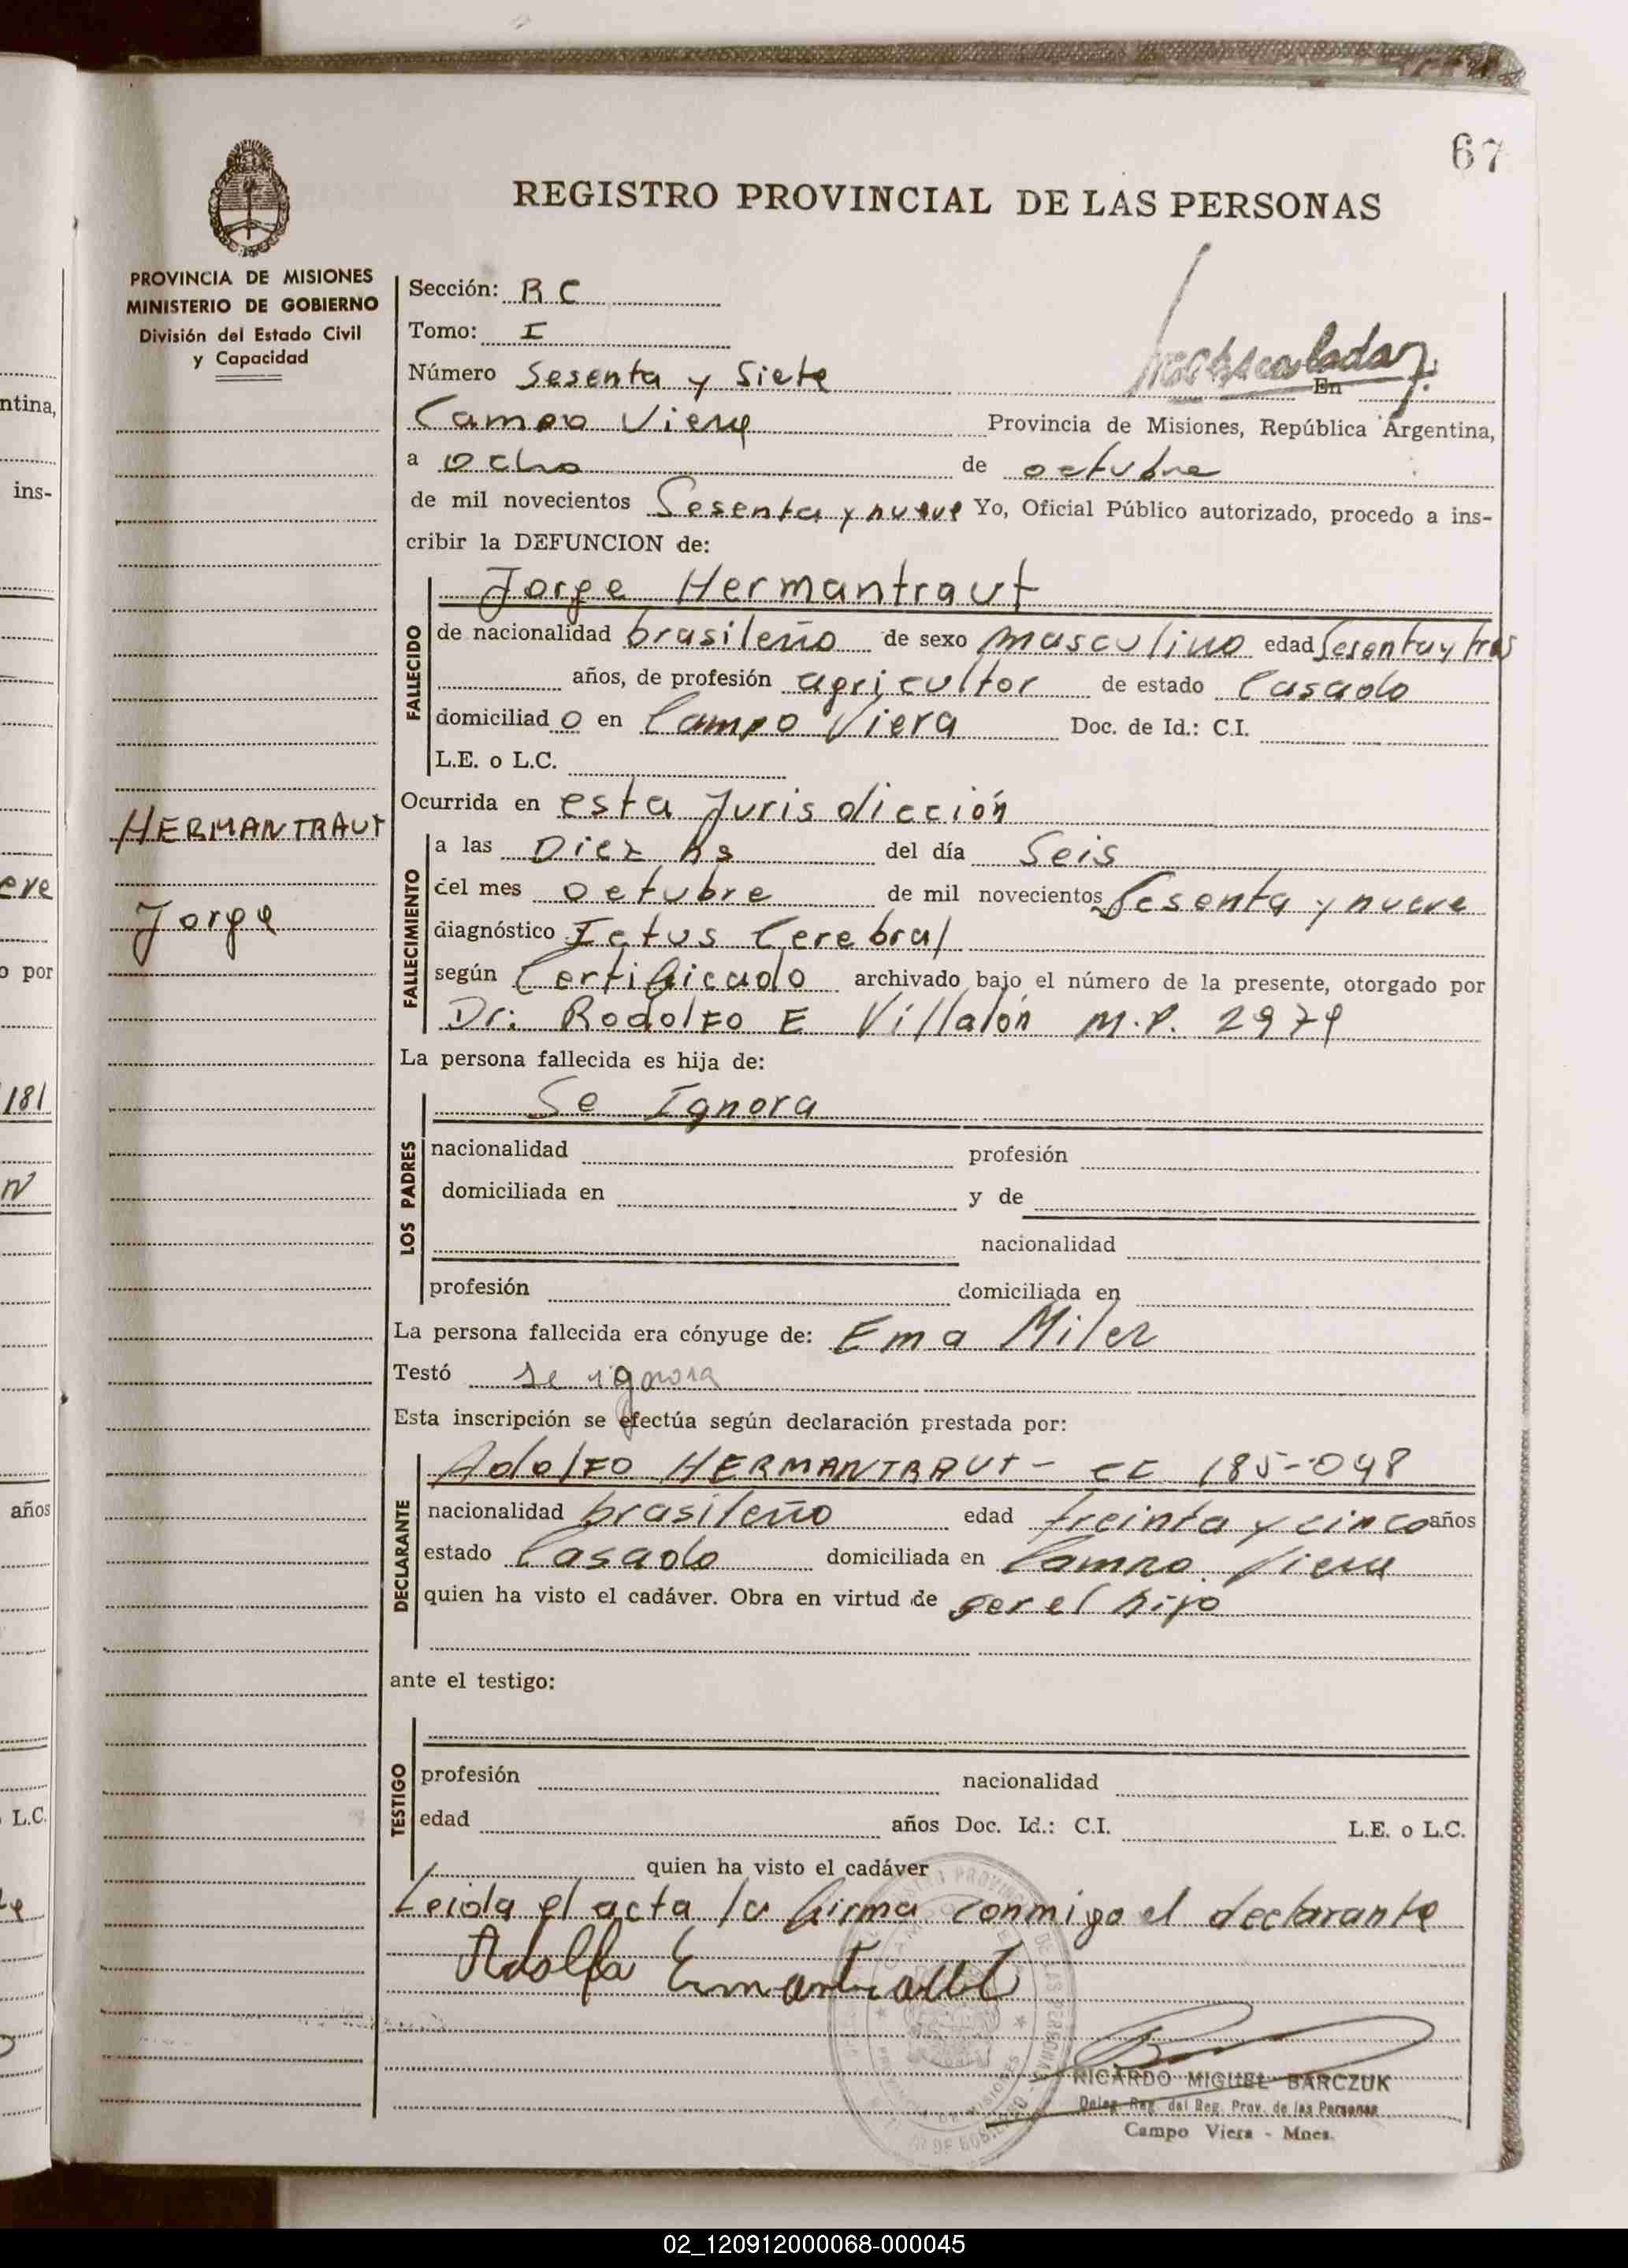 67
REGISTRO PROVINCIAL DE LAS PERSONAS
PROVINCIA DE MISIONES
MINISTERIO DE GOBIERNO
División del Estado Civil
y Capacidad
Sección: R C
Tomo: I
Número Sesenta y Siete En
Campo Viera Provincia de Misiones, República Argentina,
a ocho de octubre
de mil novecientos Sesenta y nueve Yo, Oficial Público autorizado, procedo a ins-
cribir la DEFUNCION de:
Jorge Hermantraut
FALLECIDO
de nacionalidad brasileño de sexo masculino edad sesenta y tres
años, de profesión agricultor de estado Casado
domiciliad o en Campo Viera Doc. de Id.: C.I.
L.E. o L.C.
HERMANTRAUT
Jorge
Ocurrida en esta Jurisdicción
FALLECIMIENTO
a las Diez hs del día Seis
del mes octubre de mil novecientos Sesenta y nueve
diagnóstico Ictus Cerebral
según Certificado archivado bajo el número de la presente, otorgado por
Dr: Rodolfo E Villalón M.P. 2979
La persona fallecida es hija de:
LOS PADRES
Se Ignora
nacionalidad profesión
domiciliada en y de
nacionalidad
profesión domiciliada en
La persona fallecida era cónyuge de: Ema Miler
Testó se ignora
Esta inscripción se efectúa según declaración prestada por:
DECLARANTE
Adolfo HERMANTRAUT - 185-098
nacionalidad brasileño edad treinta y cinco años
estado Casado domiciliada en Campo Viera
quien ha visto el cadáver. Obra en virtud de ser el hijo
ante el testigo:
TESTIGO
profesión nacionalidad
edad años Doc. Id.: C.I. L.E. o L.C.
quien ha visto el cadáver
Leida el acta la firma conmigo el declarante
Adolfo Ermantraut
RICARDO MIGUEL BARCZUK
Deleg. Reg. del Reg. Prov. de las Personas
Campo Viera - Mnes.
ntina,
ins-
eve
o por
181
N
años
L.C.
02_120912000068-000045